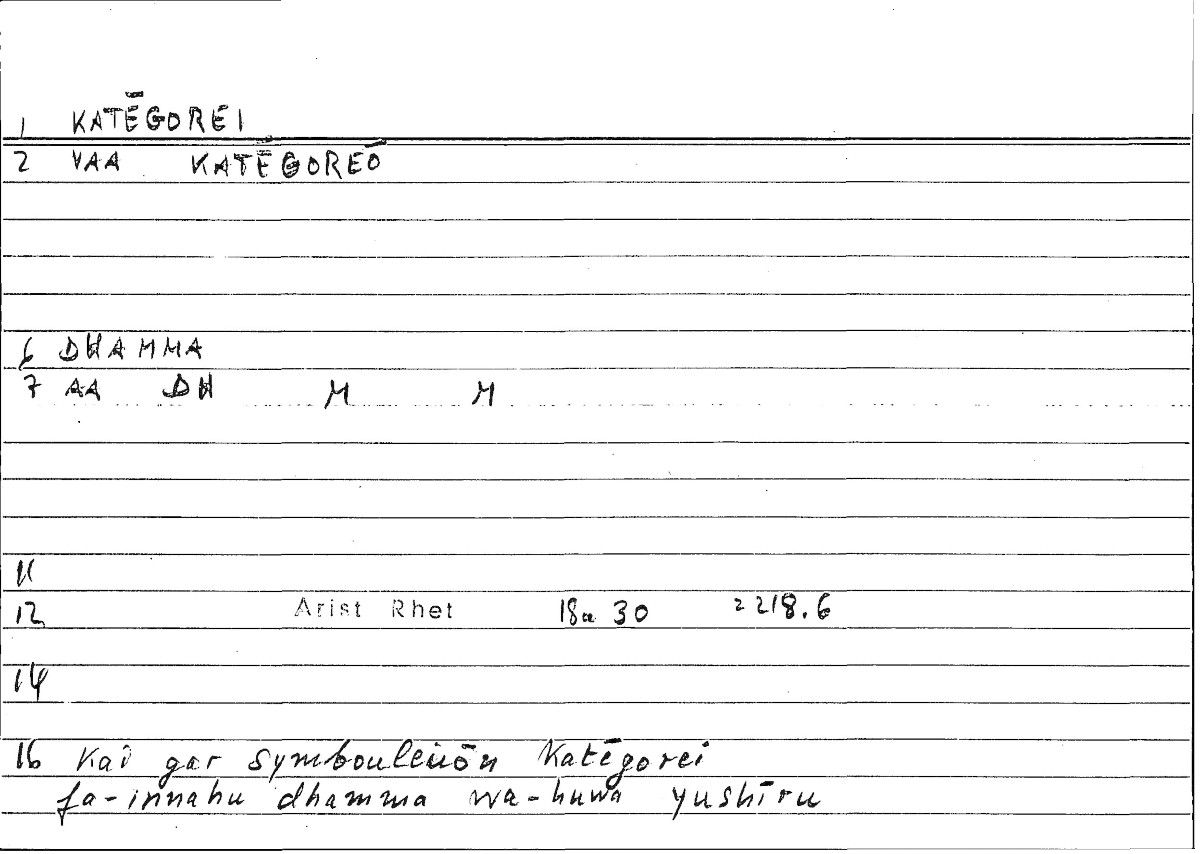 1 KATĒGOREI
2 VAA KATĒGOREŌ
6 DHAMMA
7 AA DH M M
11
12 Arist Rhet 18a 30 2218.6
14
16 Kai gar symbouleuōn Katēgorei
fa-innahu dhamma wa-huwa yushīru